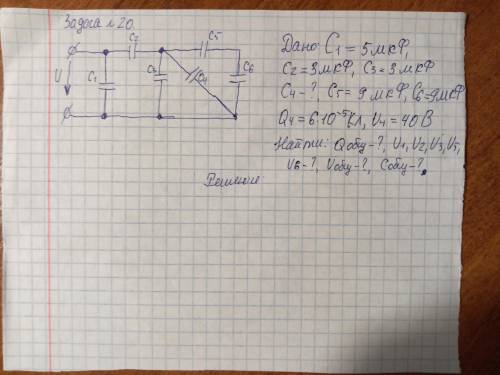 Задача №20.
C2
C5
U
C1
C3
C4
C6
Дано: C1 = 5мкФ,
C2 = 3мкФ, C3 = 3мкФ
C4 - ?, C5 = 9мкФ, C6=9мкФ
Q4 = 6·10⁻⁵Кл, U4 = 40В
Найти: Qобщ - ?, U1, U2, U3, U5,
U6 - ?, Uобщ - ?, Cобщ - ?
Решение